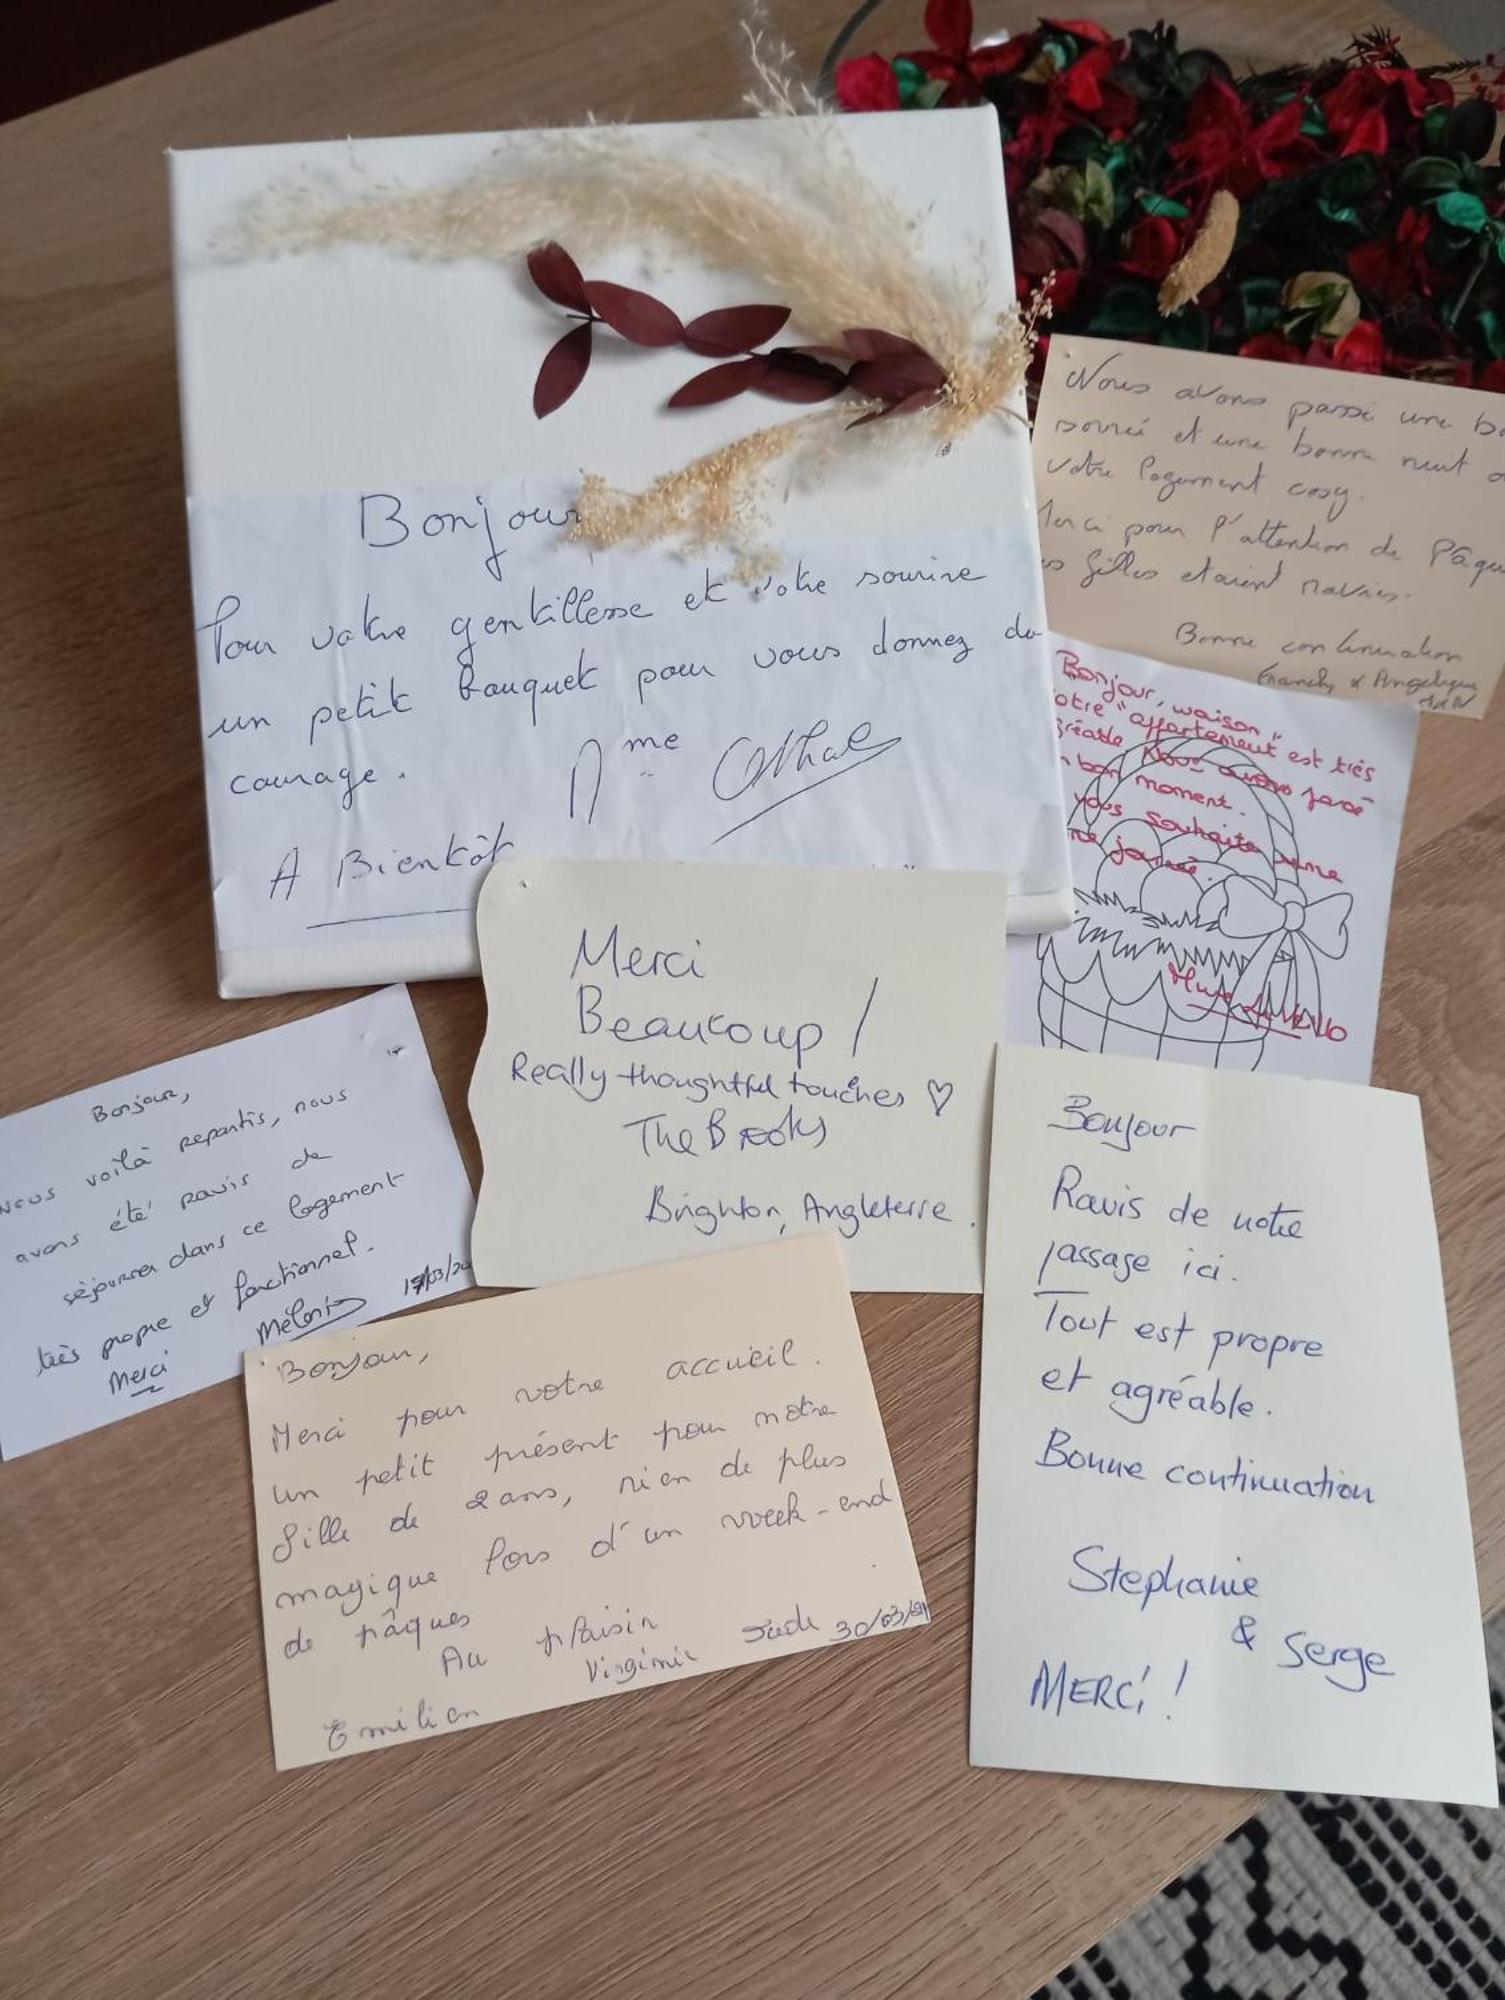 Bonjour
Pour votre gentillesse et votre sourire
un petit bouquet pour vous donnez du
courage.
Mme
A Bientôt
Nous avons passé une
soirée et une bonne nuit
votre logement cosy.
Merci pour l'attention de
filles etaient ravies.
Bonne continuation
& Angelique
Bonjour, waison
"affartement" est très
Nous avons passé
bon moment.
vous souhaite une
journée.
Merci
Beaucoup!
Really thoughtful touches ♡
The Brooks
Brighton, Angleterre.
Bonjour,
Nous voilà repartis, nous
avons été ravis de
séjourner dans ce logement
très propre et fonctionnel.
Merci
Bonjour,
Merci pour votre accueil.
un petit présent pour notre
fille de 2 ans, rien de plus
magique lors d'un week-end
de pâques
Au plaisir
Virginie Jude 30/03/24
Emilien
Bonjour
Ravis de notre
passage ici.
Tout est propre
et agréable.
Bonne continuation
Stephanie
& Serge
MERCi!